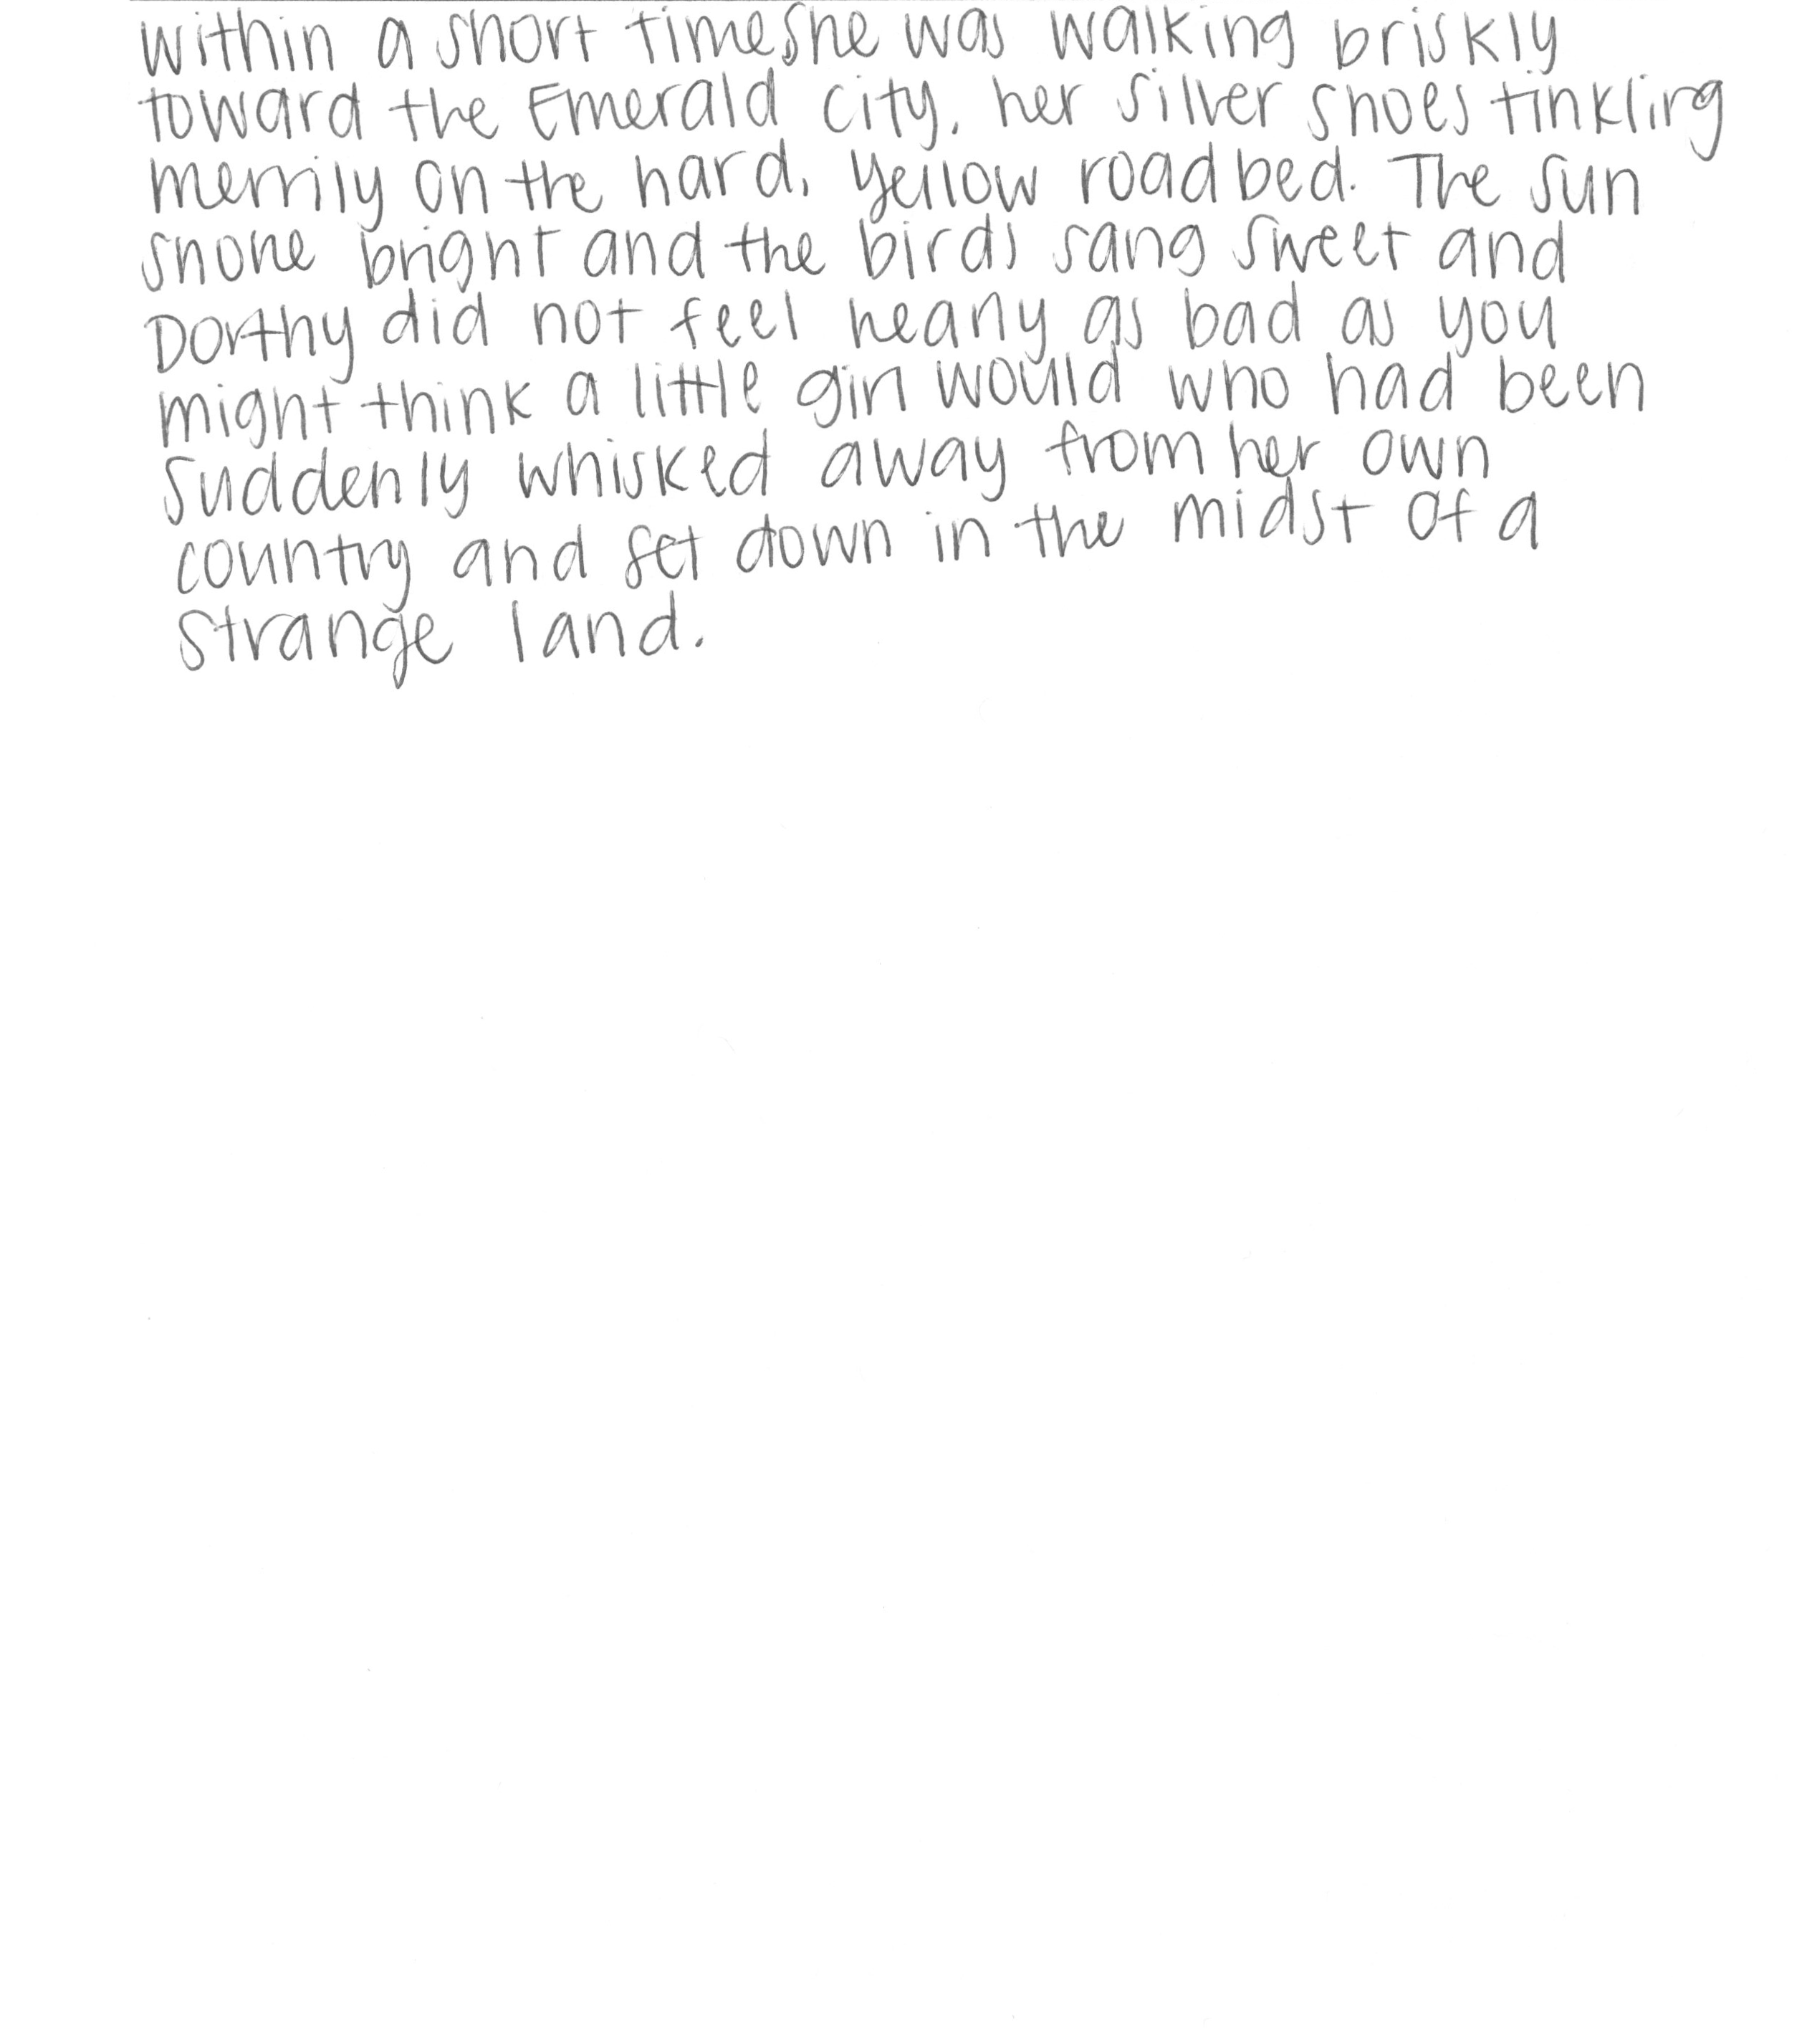 within a short time, she was walking briskly
toward the Emerald city, her silver shoes tinkling
merrily on the hard, yellow roadbed. The sun
shone bright and the birds sang sweet and
Dorthy did not feel nearly as bad as you
might think a little girl would who had been
suddenly whisked away from her own
country and set down in the midst of a
strange land.